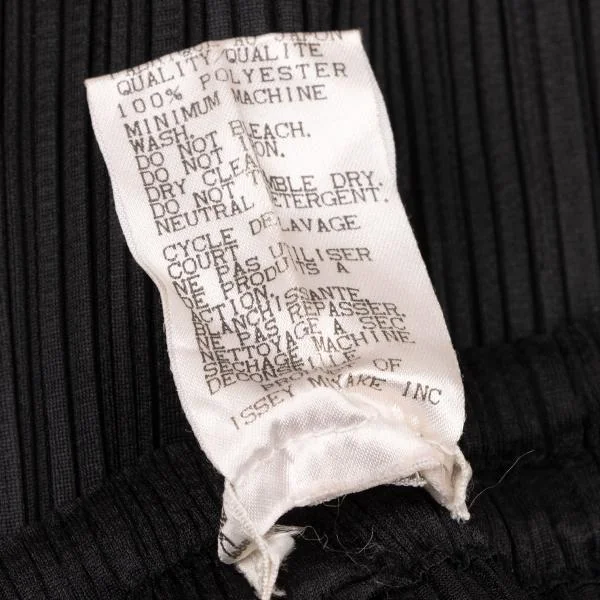 AU JAPON
QUALITY/QUALITE
100% POLYESTER
MINIMUM MACHINE
WASH.
DO NOT BLEACH.
DO NOT IRON.
DRY CLEAN
DO NOT TUMBLE DRY.
NEUTRAL DETERGENT.
CYCLE DE LAVAGE
COURT
NE PAS UTILISER
DE PRODUITS A
ACTION
BLANCHISSANTE.
NE PAS REPASSER.
NETTOYAGE A SEC
SECHAGE MACHINE
DECONSEILLE
OF
ISSEY MIYAKE INC